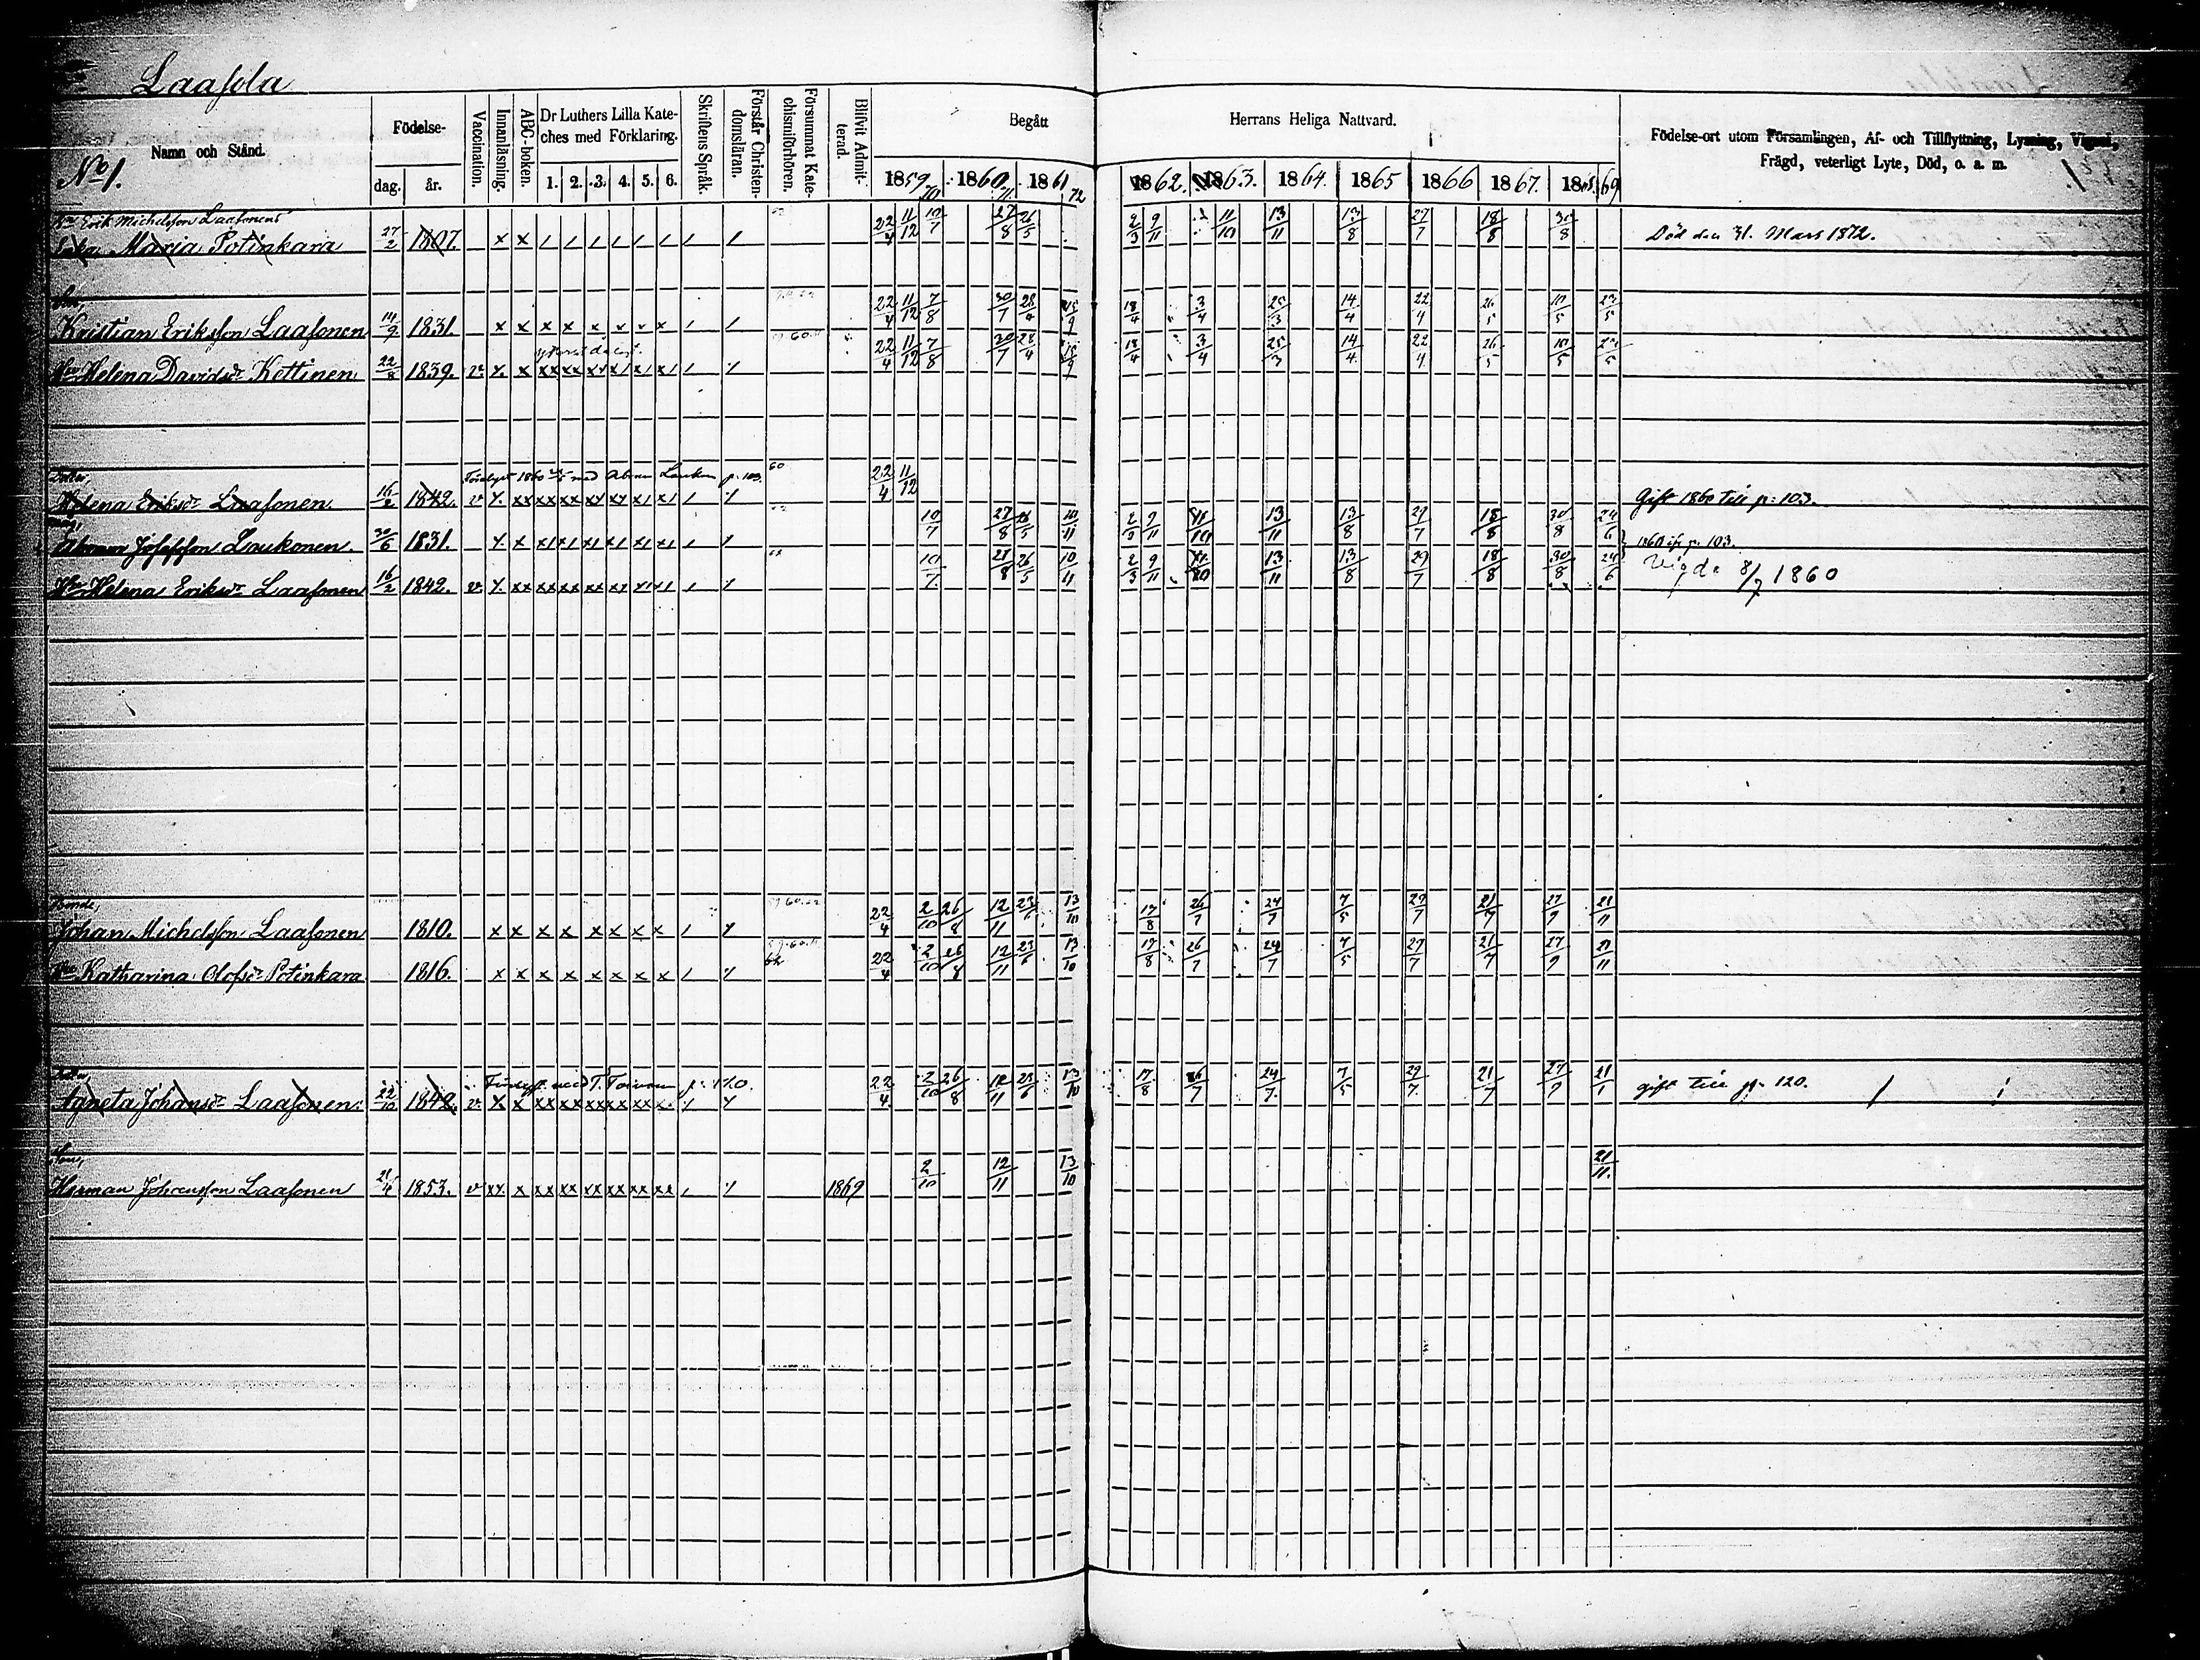 Laasola
No 1.
Namn och Stånd.
Födelse-
dag. år.
Vaccination.
Innanläsning.
ABC-boken.
Dr Luthers Lilla Kate-
ches med Förklaring.
1. 2. 3. 4. 5. 6.
Skriftens Språk.
Förstår Christen-
domsläran.
Försummat Kate-
chismiförhören.
Blifvit Admit-
terad.
Begått Herrans Heliga Nattvard.
1859 1860 1861 72 1862. 1863. 1864. 1865 1866 1867. 69
Födelse-ort utom Församlingen, Af- och Tillflyttning, Lysning, Vigsel,
Frägd, veterligt Lyte, Död, o. a. m.
Erik Michelsson Laasonens
Enka Maria Potinkara 27/2 1807. x x 22/4 11/12 10/7 27/8 26/5 2/3 9/11 11/10 13/11 13/8 27/7 18/8 30/8 Död den 31. Mars 1872.
Son,
Kristian Eriksson Laasonen 14/9 1831. x x x x x x x x 22/4 11/12 7/8 30/7 28/4 15/9 18/4 3/4 25/3 14/4 22/4 26/5 10/5 23/5
Hu Helena Davidsdr Kettinen 22/8 1839. v. 22/4 11/12 7/8 30/7 28/4 15/9 18/4 3/4 25/3 14/4 22/4 26/5 10/5 23/5
Dotter, 1860 med Abram p. 103. 60
Helena Eriksdr Laasonen 16/2 1842. v 22/4 11/12 Gift 1860 till p. 103.
Måg,
Abram Josefsson Laukonen. 30/6 1831. 10/7 27/8 26/5 10/11 2/3 9/11 11/10 13/11 13/8 29/7 18/8 30/8 24/6 1860 p. 103.
Hu Helena Eriksdr Laasonen 16/2 1842. v. 10/7 28/8 26/5 10/11 2/3 9/11 11/10 13/11 13/8 29/7 18/8 30/8 24/6 Vigde 8/7 1860
Bonde,
Johan Michelsson Laasonen 1810. x x x x x x x x 22/4 2/10 26/8 12/11 23/6 13/10 17/8 26/7 24/7 7/5 29/7 21/7 27/9 21/11
Hu Katharina Olofsdr Potinkara 1816. x x x x x x x x 22/4 2/10 26/8 12/11 23/6 13/10 17/8 26/7 24/7 7/5 27/7 21/7 27/9 21/11
Dotter, med T. p. 120.
Agneta Johansdr Laasonen. 22/10 1842. v. 22/4 2/10 26/8 12/11 23/6 13/10 17/8 26/7 24/7 7/5 29/7 21/7 27/9 gift till p. 120.
Son,
Herman Johansson Laasonen 21/4 1853. v 1869 2/10 12/11 13/10 21/11.